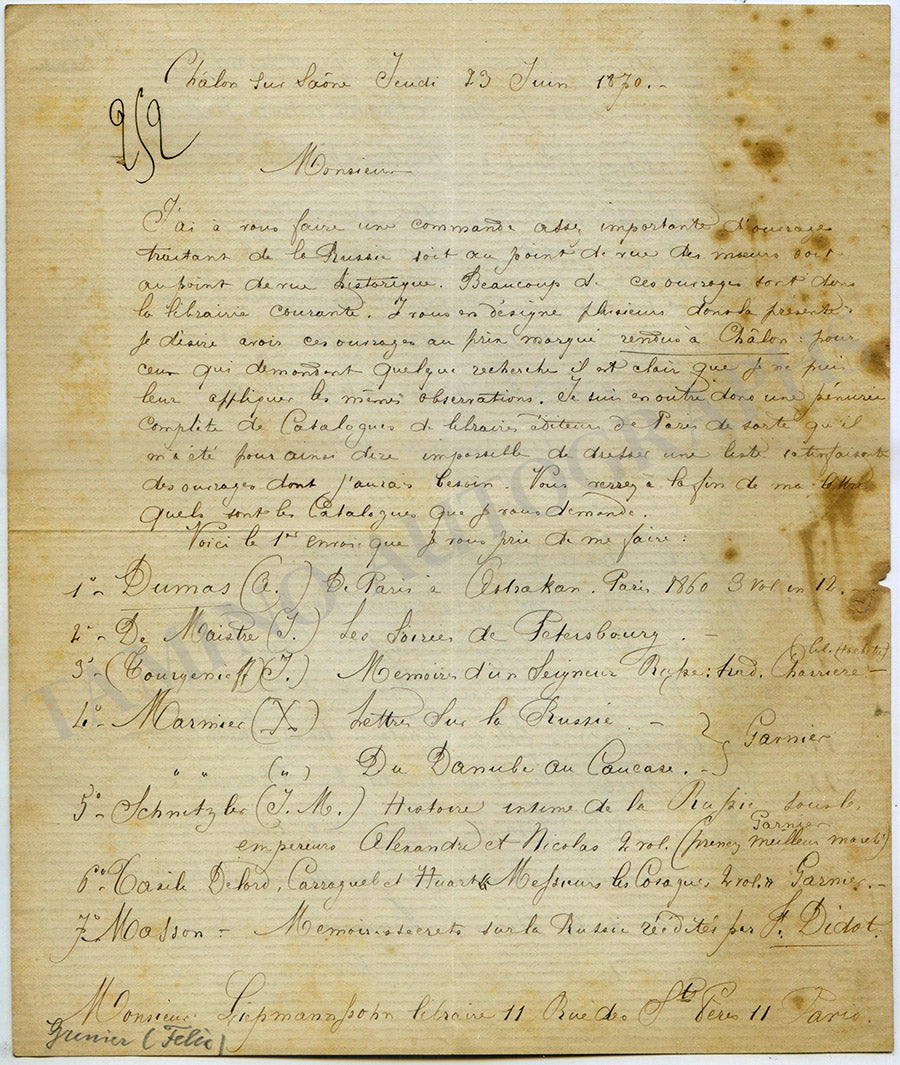 Châlon sur Saône Jeudi 23 Juin 1870.-
252
Monsieur
J'ai à vous faire une commande assez importante d'ouvrages
traitant de la Russie soit au point de vue des mœurs soit
au point de vue historique. Beaucoup de ces ouvrages sont dans
la librairie courante. J vous en désigne plusieurs dans la présente:
je désire avoir ces ouvrages au prix marqué rendus à Châlon: pour
ceux qui demandent quelque recherche il est clair que je ne puis
leur appliquer les mêmes observations. Je suis en outre dans une pénurie
complète de Catalogues de libraires éditeurs de Paris de sorte qu'il
m'a été pour ainsi dire impossible de dresser une liste satisfaisante
des ouvrages dont j'aurais besoin. Vous verrez à la fin de ma lettre
quels sont les Catalogues que je vous demande.
Voici le 1er envoi que je vous prie de me faire:
1°- Dumas (A.) De Paris à Astrakan. Paris 1860 3 vol in 12.
2°- De Maistre (J.) Les Soirées de Petersbourg. -
3°- (Tourgenieff) (J.) Memoires d'un Seigneur Russe: trad. Charriere -
(lib. Hachette)
4°- Marmier (X.) Lettres sur la Russie - } Garnier
" " (") Du Danube au Caucase. -
5°- Schnitzler (J. M.) Histoire intime de la Russie sous les
empereurs Alexandre et Nicolas 2 vol. (Garnier meilleur marché)
6°- Taxile Delord, Carraguel et Huart « Messieurs les Cosaques 2 vol. » Garnier. -
7°- Masson - Memoires secrets sur la Russie réédités par F. Didot.
Monsieur Liepmannssohn libraire 11 Rue des Sts Pères 11 Paris.
Grenier (Felix)
TAMINO AUTOGRAPHS